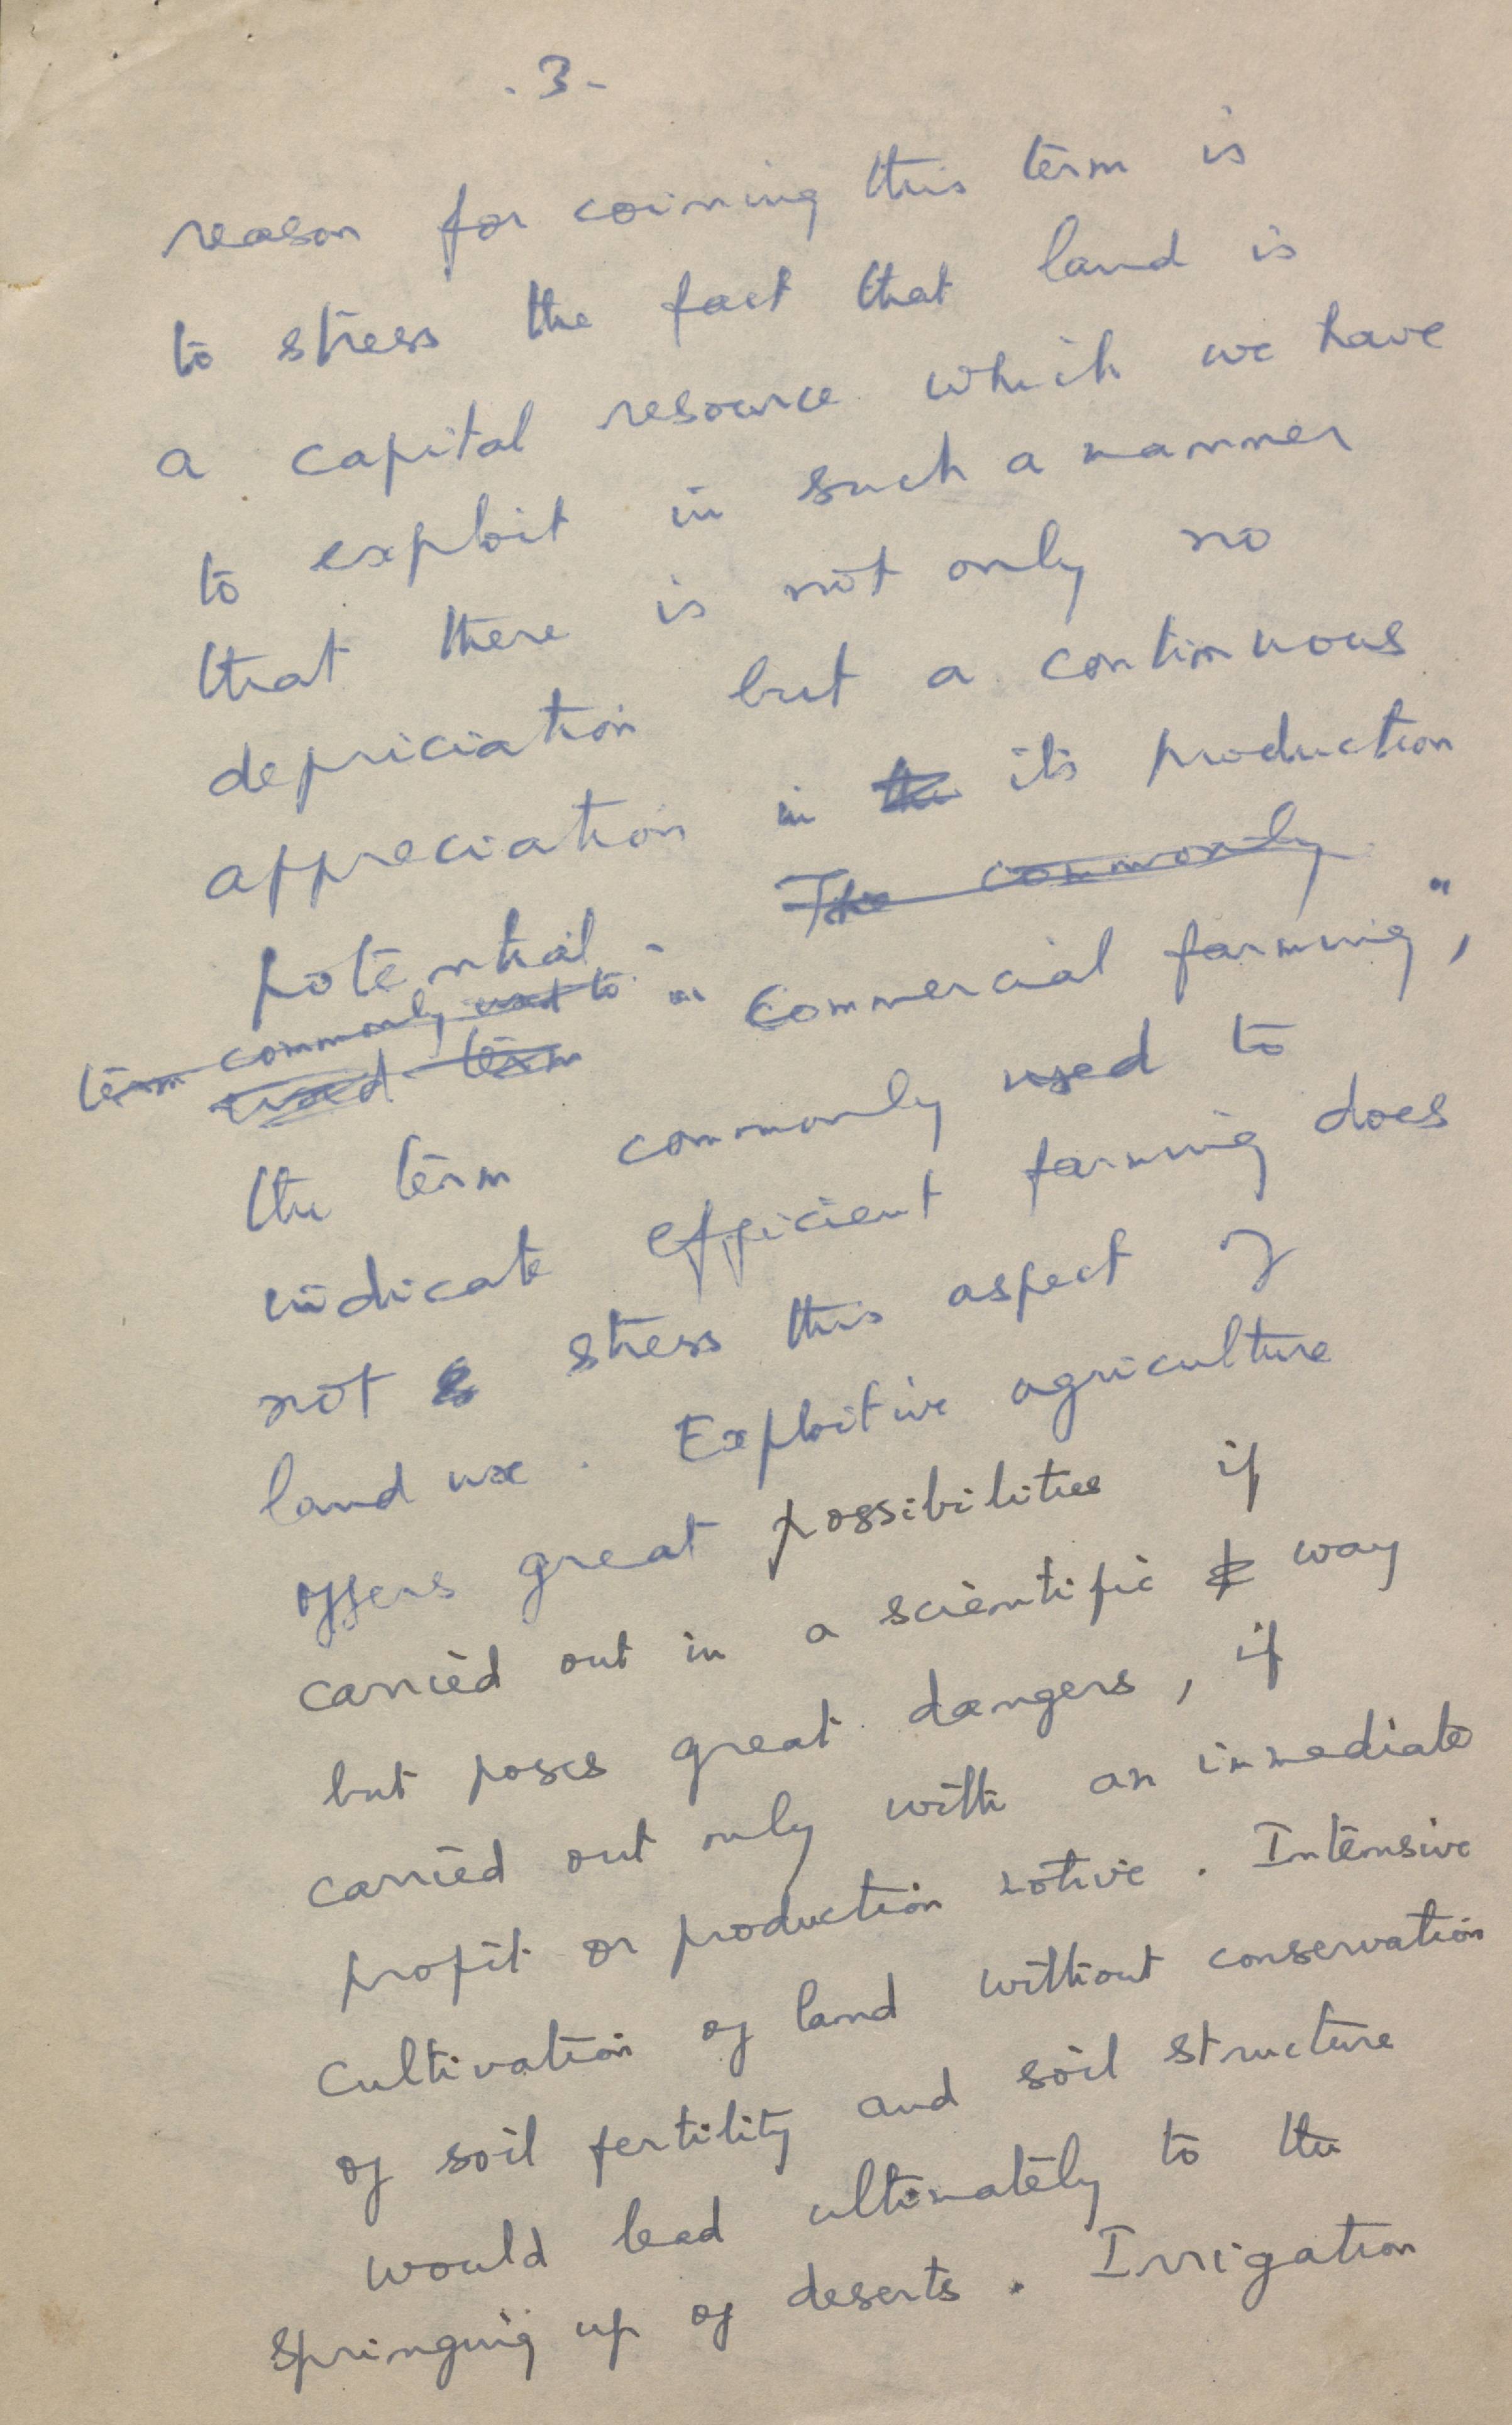 . 3 -
reason for coining this term is
to stress the fact that land is
a capital resource which we have
to exploit in such a manner
that there is not only no
depriciation but a continuous
appreciation in the its production
potential. The commonly
term commonly used to
used term "Commercial farming",
the term commonly used to
indicate efficient farming does
not s stress this aspect of
land use. Exploitive agriculture
offers great possibilities if
carried out in a scientific way
but poses great dangers, if
carried out only with an immediate
profit or production motive. Intensive
cultivation of land without conservation
of soil fertility and soil structure
would lead ultimately to the
springing up of deserts. Irrigation